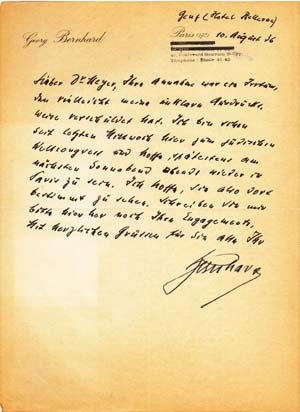 Genf (Hotel Bellevue)
Georg Bernhard
Paris 10. August 36
Lieber Dr Meyer, Ihre Annahme war ein Irrtum,
den vielleicht meine unklare Ausdrucks
weise verschuldet hat. Ich bin schon
seit letzten Mittwoch hier zum jüdischen
Weltkongress und hoffe, spätestens am
nächsten Sonnabend abends wieder in
Paris zu sein. Ich hoffe, Sie also dort
bestimmt zu sehen. Schreiben Sie mir
bitte hierher noch Ihre Engagements.
Mit herzlichen Grüssen für Sie alle Ihr
Bernhard